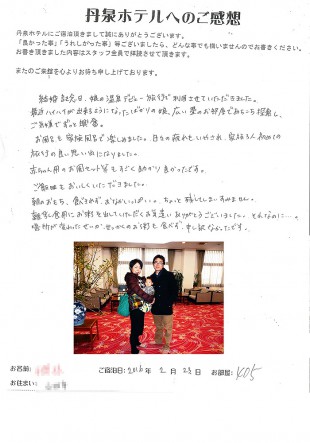 丹泉ホテルへのご感想
丹泉ホテルにご宿泊頂きまして誠にありがとうございます。
「良かった事」「うれしかった事」等ございましたら、どんな事でも構いませんのでお書きください。
お書き頂きました内容はスタッフ全員で拝読させて頂きます。
またのご来館を心よりお待ち申し上げております。
結婚記念日、娘の温泉デビュー旅行で利用させていただきました。
最近ハイハイが出来るようになったばかりの娘、広い畳のお部屋であちこち探索し、
ご機嫌でずっと興奮。
お風呂も家族風呂で楽しめました。日々の疲れもいやされ、家族3人初めての
旅行の良い思い出になりました。
赤ちゃん用のお風呂セット等もすごく助かり良かったです。
ご飯もおいしくいただきました。
朝のおもち、食べきれず、おなかいっぱい…。ちょっと残してしまいすみません。
離乳食用にお粥を出していただくお気遣いありがとうございました。それなのに…。
場所が変わったせいか、せっかくのお粥も食べず、申し訳なかったです。
お名前:
ご宿泊日: 2016年 2月 28日
お部屋: 405
お住まい: